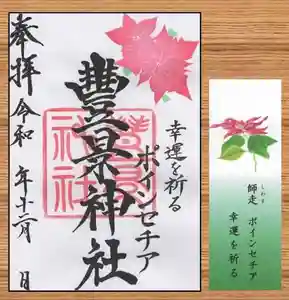 幸運を祈る
ポインセチア
豊景神社
奉拝 令和 年十二月 日
師走 ポインセチア
しわす
幸運を祈る